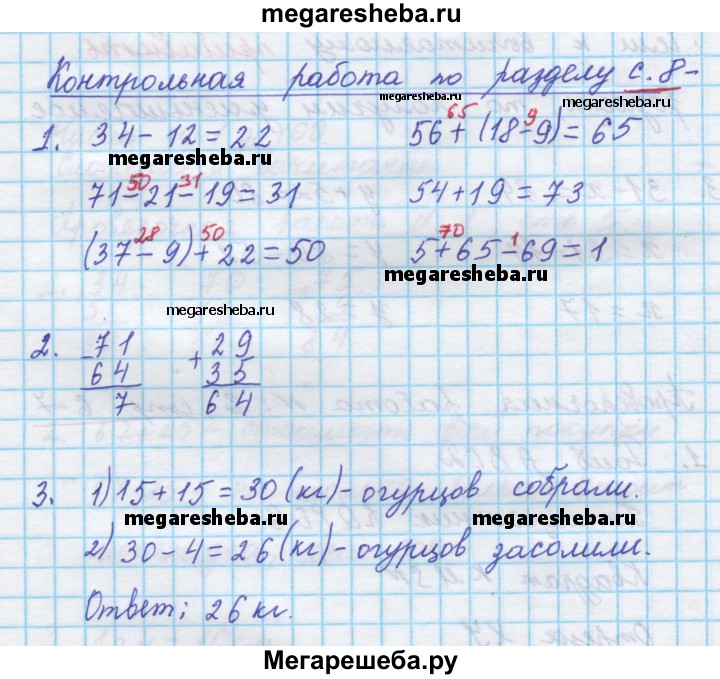 megaresheba.ru
Контрольная работа по разделу с. 8-
megaresheba.ru
megaresheba.ru
1. 34-12=22
56+(18-9)=65
65 9
megaresheba.ru
71-21-19=31
50 31
54+19=73
(37-9)+22=50
28 50
5+65-69=1
70 1
megaresheba.ru
megaresheba.ru
2. -71
64
7
+29
35
64
3. 1) 15+15=30 (кг)-огурцов собрали.
megaresheba.ru
megaresheba.ru
2) 30-4=26 (кг)-огурцов засолили.
Ответ: 26 кг.
megaresheba.ru
Мегарешеба.ру